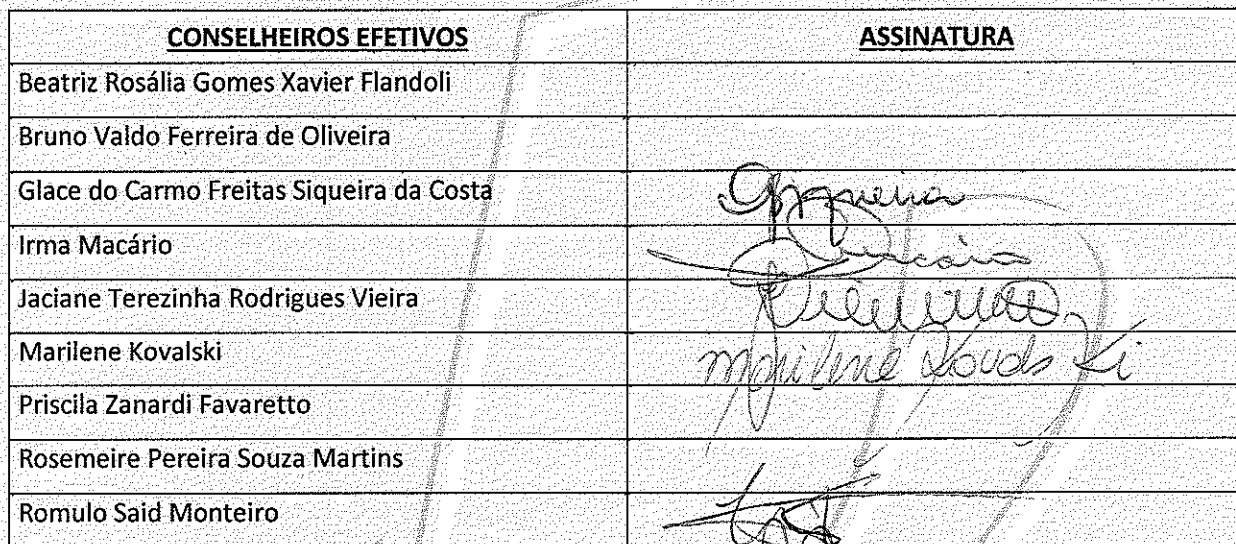 CONSELHEIROS EFETIVOS ASSINATURA
Beatriz Rosália Gomes Xavier Flandoli
Bruno Valdo Ferreira de Oliveira
Glace do Carmo Freitas Siqueira da Costa
Irma Macário
Jaciane Terezinha Rodrigues Vieira
Marilene Kovalski Marilene Kovalski
Priscila Zanardi Favaretto
Rosemeire Pereira Souza Martins
Romulo Said Monteiro